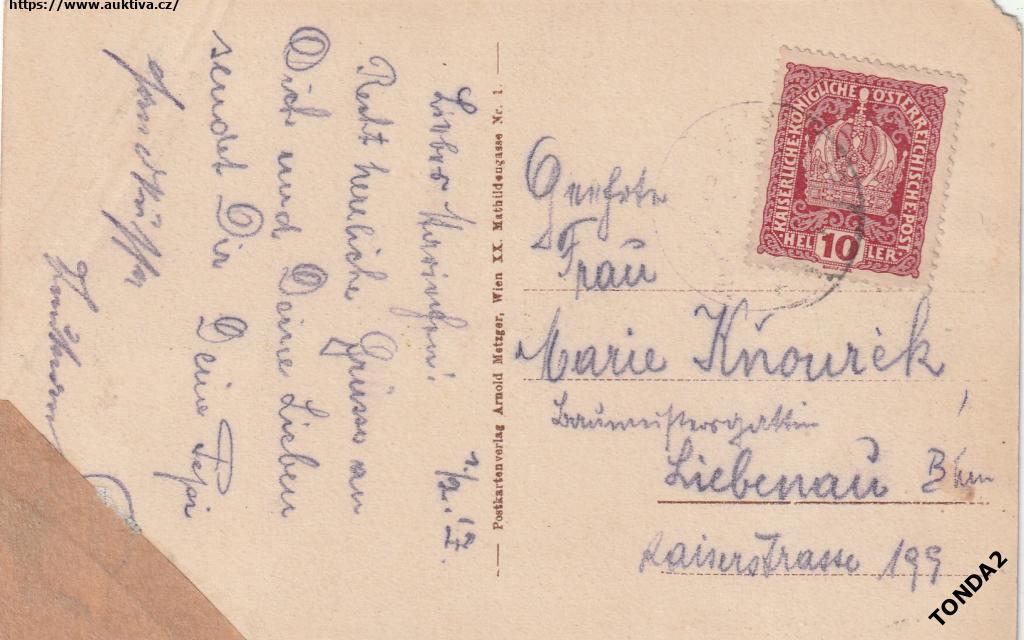 https://www.auktiva.cz/
1./2. 17.
Liebes Mariechen!
Recht herzliche Grüsse an
Dich und Deine Lieben
sendet Dir Deine Pepi
Postkartenverlag Arnold Metzger, Wien XX. Mathildengasse Nr. 1.
KAISERLICHE·KÖNIGLICHE ÖSTERREICHISCHE·POST·
HELLER
10
Geehrte
Frau
Marie Kňourek
Baumeistersgattin
Liebenau Bhm
Kaiserstrasse 199
TONDA2